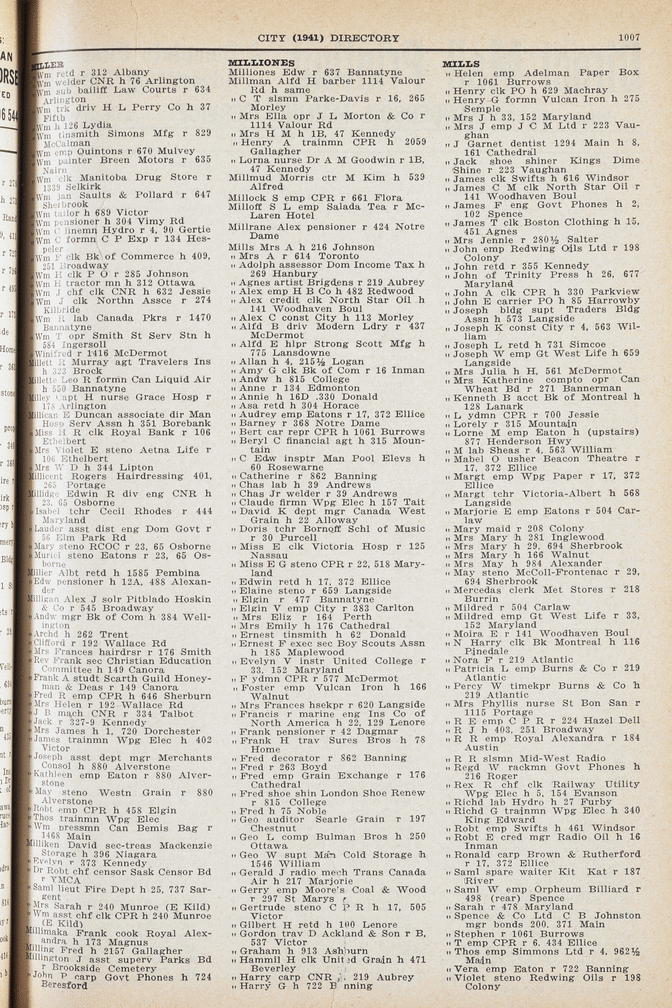 CITY (1941) DIRECTORY 1007
MILLER
„ Wm retd r 312 Albany
„ Wm welder CNR h 76 Arlington
„ Wm sub bailiff Law Courts r 634
Arlington
„ Wm trk driv H L Perry Co h 37
Fifth
„ Wm h 126 Lydia
„ Wm tinsmith Simons Mfg r 829
McCalman
„ Wm emp Quintons r 670 Mulvey
„ Wm painter Breen Motors r 635
Nairn
„ Wm clk Manitoba Drug Store r
1339 Selkirk
„ Wm jan Saults & Pollard r 647
Sherbrook
„ Wm tailor h 689 Victor
„ Wm pensioner h 304 Vimy Rd
„ Wm C linemn Hydro r 4, 90 Gertie
„ Wm C formn C P Exp r 134 Hes-
peler
„ Wm F clk Bk of Commerce h 409,
251 Broadway
„ Wm H clk P O r 285 Johnson
„ Wm H tractor mn h 312 Ottawa
„ Wm J chf clk CNR h 632 Jessie
„ Wm J clk Northn Assce r 274
Kilbride
„ Wm R lab Canada Pkrs r 1470
Bannatyne
„ Wm T opr Smith St Serv Stn h
584 Ingersoll
„ Winifred r 1416 McDermot
Millett R Murray agt Travelers Ins
h 323 Brock
Millette Leo R formn Can Liquid Air
h 550 Bannatyne
Milley Capt H nurse Grace Hosp r
178 Arlington
Millican E Duncan associate dir Man
Hosp Serv Assn h 351 Borebank
„ Miss H R clk Royal Bank r 106
Ethelbert
„ Mrs Violet E steno Aetna Life r
106 Ethelbert
„ Mrs W D h 344 Lipton
Millicent Rogers Hairdressing 401,
265 Portage
Millidge Edwin R div eng CNR h
23, 65 Osborne
„ Isabel tchr Cecil Rhodes r 444
Maryland
„ Lauder asst dist eng Dom Govt r
56 Elm Park Rd
„ Mary steno RCOC r 23, 65 Osborne
„ Muriel steno Eatons r 23, 65 Os-
borne
Millier Albt retd h 1585 Pembina
„ Edw pensioner h 12A, 488 Alexan-
der
Milligan Alex J solr Pitblado Hoskin
& Co r 545 Broadway
„ Andw mgr Bk of Com h 384 Well-
ington
„ Archd h 262 Trent
„ Clifford r 192 Wallace Rd
„ Mrs Frances hairdrsr r 176 Smith
„ Rev Frank sec Christian Education
Committee h 149 Canora
„ Frank A studt Scarth Guild Honey-
man & Deas r 149 Canora
„ Fred R emp CPR h 646 Sherburn
„ Mrs Helen r 192 Wallace Rd
„ J B mach CNR r 334 Talbot
„ Jack r 327-9 Kennedy
„ Mrs James h 1, 720 Dorchester
„ James trainmn Wpg Elec h 402
Victor
„ Joseph asst dept mgr Merchants
Consol h 880 Alverstone
„ Kathleen emp Eaton r 880 Alver-
stone
„ May steno Westn Grain r 880
Alverstone
„ Robt emp CPR h 458 Elgin
„ Thos trainmn Wpg Elec
„ Wm pressmn Can Bemis Bag r
1468 Main
Milliken David sec-treas Mackenzie
Storage h 396 Niagara
„ Evelyn r 373 Kennedy
„ Dr Robt chf censor Sask Censor Bd
r YMCA
„ Saml lieut Fire Dept h 25, 737 Sar-
gent
„ Mrs Sarah r 240 Munroe (E Kild)
„ Wm asst chf clk CPR h 240 Munroe
(E Kild)
Millimaka Frank cook Royal Alex-
andra h 173 Magnus
Milling Fred h 2157 Gallagher
Millington J asst superv Parks Bd
r Brookside Cemetery
„ John P carp Govt Phones h 724
Beresford
MILLIONES
Milliones Edw r 637 Bannatyne
Millman Alfd H barber 1114 Valour
Rd h same
„ C T slsmn Parke-Davis r 16, 265
Morley
„ Mrs Ella opr J L Morton & Co r
1114 Valour Rd
„ Mrs H M h 1B, 47 Kennedy
„ Henry A trainmn CPR h 2059
Gallagher
„ Lorna nurse Dr A M Goodwin r 1B,
47 Kennedy
Millmud Morris ctr M Kim h 539
Alfred
Millock S emp CPR r 661 Flora
Milloff S L emp Salada Tea r Mc-
Laren Hotel
Millrane Alex pensioner r 424 Notre
Dame
Mills Mrs A h 216 Johnson
„ Mrs A r 614 Toronto
„ Adolph assessor Dom Income Tax h
269 Hanbury
„ Agnes artist Brigdens r 219 Aubrey
„ Alex emp H B Co h 482 Redwood
„ Alex credit clk North Star Oil h
141 Woodhaven Boul
„ Alex C const City h 113 Morley
„ Alfd B driv Modern Ldry r 437
McDermot
„ Alfd E hlpr Strong Scott Mfg h
775 Lansdowne
„ Allan h 4, 215½ Logan
„ Amy G clk Bk of Com r 16 Inman
„ Andw h 815 College
„ Anne r 134 Edmonton
„ Annie h 16D .330 Donald
„ Asa retd h 304 Horace
„ Audrey emp Eatons r 17, 372 Ellice
„ Barney r 368 Notre Dame
„ Bert car repr CPR h 1061 Burrows
„ Beryl C financial agt h 315 Moun-
tain
„ C Edw insptr Man Pool Elevs h
60 Rosewarne
„ Catherine r 862 Banning
„ Chas lab h 39 Andrews
„ Chas Jr welder r 39 Andrews
„ Claude firmn Wpg Elec h 157 Tait
„ David K dept mgr Canada West
Grain h 22 Alloway
„ Doris tchr Bornoff Schl of Music
r 30 Purcell
„ Miss E clk Victoria Hosp r 125
Nassau
„ Miss E G steno CPR r 22, 518 Mary-
land
„ Edwin retd h 17, 372 Ellice
„ Elaine steno r 659 Langside
„ Elgin r 477 Bannatyne
„ Elgin V emp City r 383 Carlton
„ Mrs Eliz r 164 Perth
„ Mrs Emily h 176 Cathedral
„ Ernest tinsmith h 62 Donald
„ Ernest F exec sec Boy Scouts Assn
h 185 Maplewood
„ Evelyn V instr United College r
33, 152 Maryland
„ F ydmn CPR r 577 McDermot
„ Foster emp Vulcan Iron h 166
Walnut
„ Mrs Frances hsekpr r 620 Langside
„ Francis r marine eng Ins Co of
North America h 22, 129 Lenore
„ Frank pensioner r 42 Dagmar
„ Frank H trav Sures Bros h 78
Home
„ Fred decorator r 862 Banning
„ Fred r 263 Boyd
„ Fred emp Grain Exchange r 176
Cathedral
„ Fred shoe shin London Shoe Renew
r 815 College
„ Fred h 75 Noble
„ Geo auditor Searle Grain r 197
Chestnut
„ Geo L comp Bulman Bros h 250
Ottawa
„ Geo W supt Man Cold Storage h
1546 William
„ Gerald J radio mech Trans Canada
Air h 217 Marjorie
„ Gerry emp Moore's Coal & Wood
r 297 St Marys
„ Gertrude steno C P R h 17, 505
Victor
„ Gilbert H retd h 100 Lenore
„ Gordon trav D Ackland & Son r B,
537 Victor
„ Graham h 913 Ashburn
„ Hammil H clk United Grain h 471
Beverley
„ Harry carp CNR 219 Aubrey
„ Harry G h 722 Banning
MILLS
„ Helen emp Adelman Paper Box
r 1061 Burrows
„ Henry clk PO h 629 Machray
„ Henry G formn Vulcan Iron h 275
Semple
„ Mrs J h 33, 152 Maryland
„ Mrs J emp J C M Ltd r 223 Vau-
ghan
„ J Garnet dentist 1294 Main h 8,
161 Cathedral
„ Jack shoe shiner Kings Dime
Shine r 223 Vaughan
„ James clk Swifts h 616 Windsor
„ James C M clk North Star Oil r
141 Woodhaven Boul
„ James F eng Govt Phones h 2,
102 Spence
„ James T clk Boston Clothing h 15,
451 Agnes
„ Mrs Jennie r 280½ Salter
„ John emp Redwing Oils Ltd r 198
Colony
„ John retd r 355 Kennedy
„ John of Trinity Press h 26, 677
Maryland
„ John A clk CPR h 330 Parkview
„ John E carrier PO h 85 Harrowby
„ Joseph bldg supt Traders Bldg
Assn h 573 Langside
„ Joseph K const City r 4, 563 Wil-
liam
„ Joseph L retd h 731 Simcoe
„ Joseph W emp Gt West Life h 659
Langside
„ Mrs Julia H h, 561 McDermot
„ Mrs Katherine compto opr Can
Wheat Bd r 271 Bannerman
„ Kenneth B acct Bk of Montreal h
128 Lanark
„ L ydmn CPR r 700 Jessie
„ Lorely r 315 Mountain
„ Lorne M emp Eaton h (upstairs)
877 Henderson Hwy
„ M lab Shea's r 4, 563 William
„ Mabel O usher Beacon Theatre r
17, 372 Ellice
„ Margt emp Wpg Paper r 17, 372
Ellice
„ Margt tchr Victoria-Albert h 568
Langside
„ Marjorie E emp Eatons r 504 Car-
law
„ Mary maid r 208 Colony
„ Mrs Mary h 281 Inglewood
„ Mrs Mary h 29, 694 Sherbrook
„ Mrs Mary h 166 Walnut
„ Mrs May h 984 Alexander
„ May steno McColl-Frontenac r 29,
694 Sherbrook
„ Mercedas clerk Met Stores r 218
Burrin
„ Mildred r 504 Carlaw
„ Mildred emp Gt West Life r 33,
152 Maryland
„ Moira E r 141 Woodhaven Boul
„ N Harry clk Bk Montreal h 116
Pinedale
„ Nora F r 219 Atlantic
„ Patricia L emp Burns & Co r 219
Atlantic
„ Percy W timekpr Burns & Co h
219 Atlantic
„ Mrs Phyllis nurse St Bon San r
1115 Portage
„ R E emp C P R r 224 Hazel Dell
„ R J h 403, 251 Broadway
„ R R emp Royal Alexandra r 184
Austin
„ R R slsmn Mid-West Radio
„ Regd W rackmn Govt Phones h
216 Roger
„ Rex R chf clk Railway Utility
Wpg Elec h 5, 154 Evanson
„ Richd lab Hydro h 27 Furby
„ Richd G trainmn Wpg Elec h 340
King Edward
„ Robt emp Swifts h 461 Windsor
„ Robt E cred mgr Radio Oil h 16
Inman
„ Ronald carp Brown & Rutherford
r 17, 372 Ellice
„ Saml spare waiter Kit Kat r 187
River
„ Saml W emp Orpheum Billiard r
498 (rear) Spence
„ Sarah r 478 Maryland
„ Spence & Co Ltd C B Johnston
mgr bonds 200, 371 Main
„ Stephen r 1061 Burrows
„ T emp CPR r 6, 434 Ellice
„ Thos emp Simmons Ltd r 4, 962½
Main
„ Vera emp Eaton r 722 Banning
„ Violet steno Redwing Oils r 198
Colony